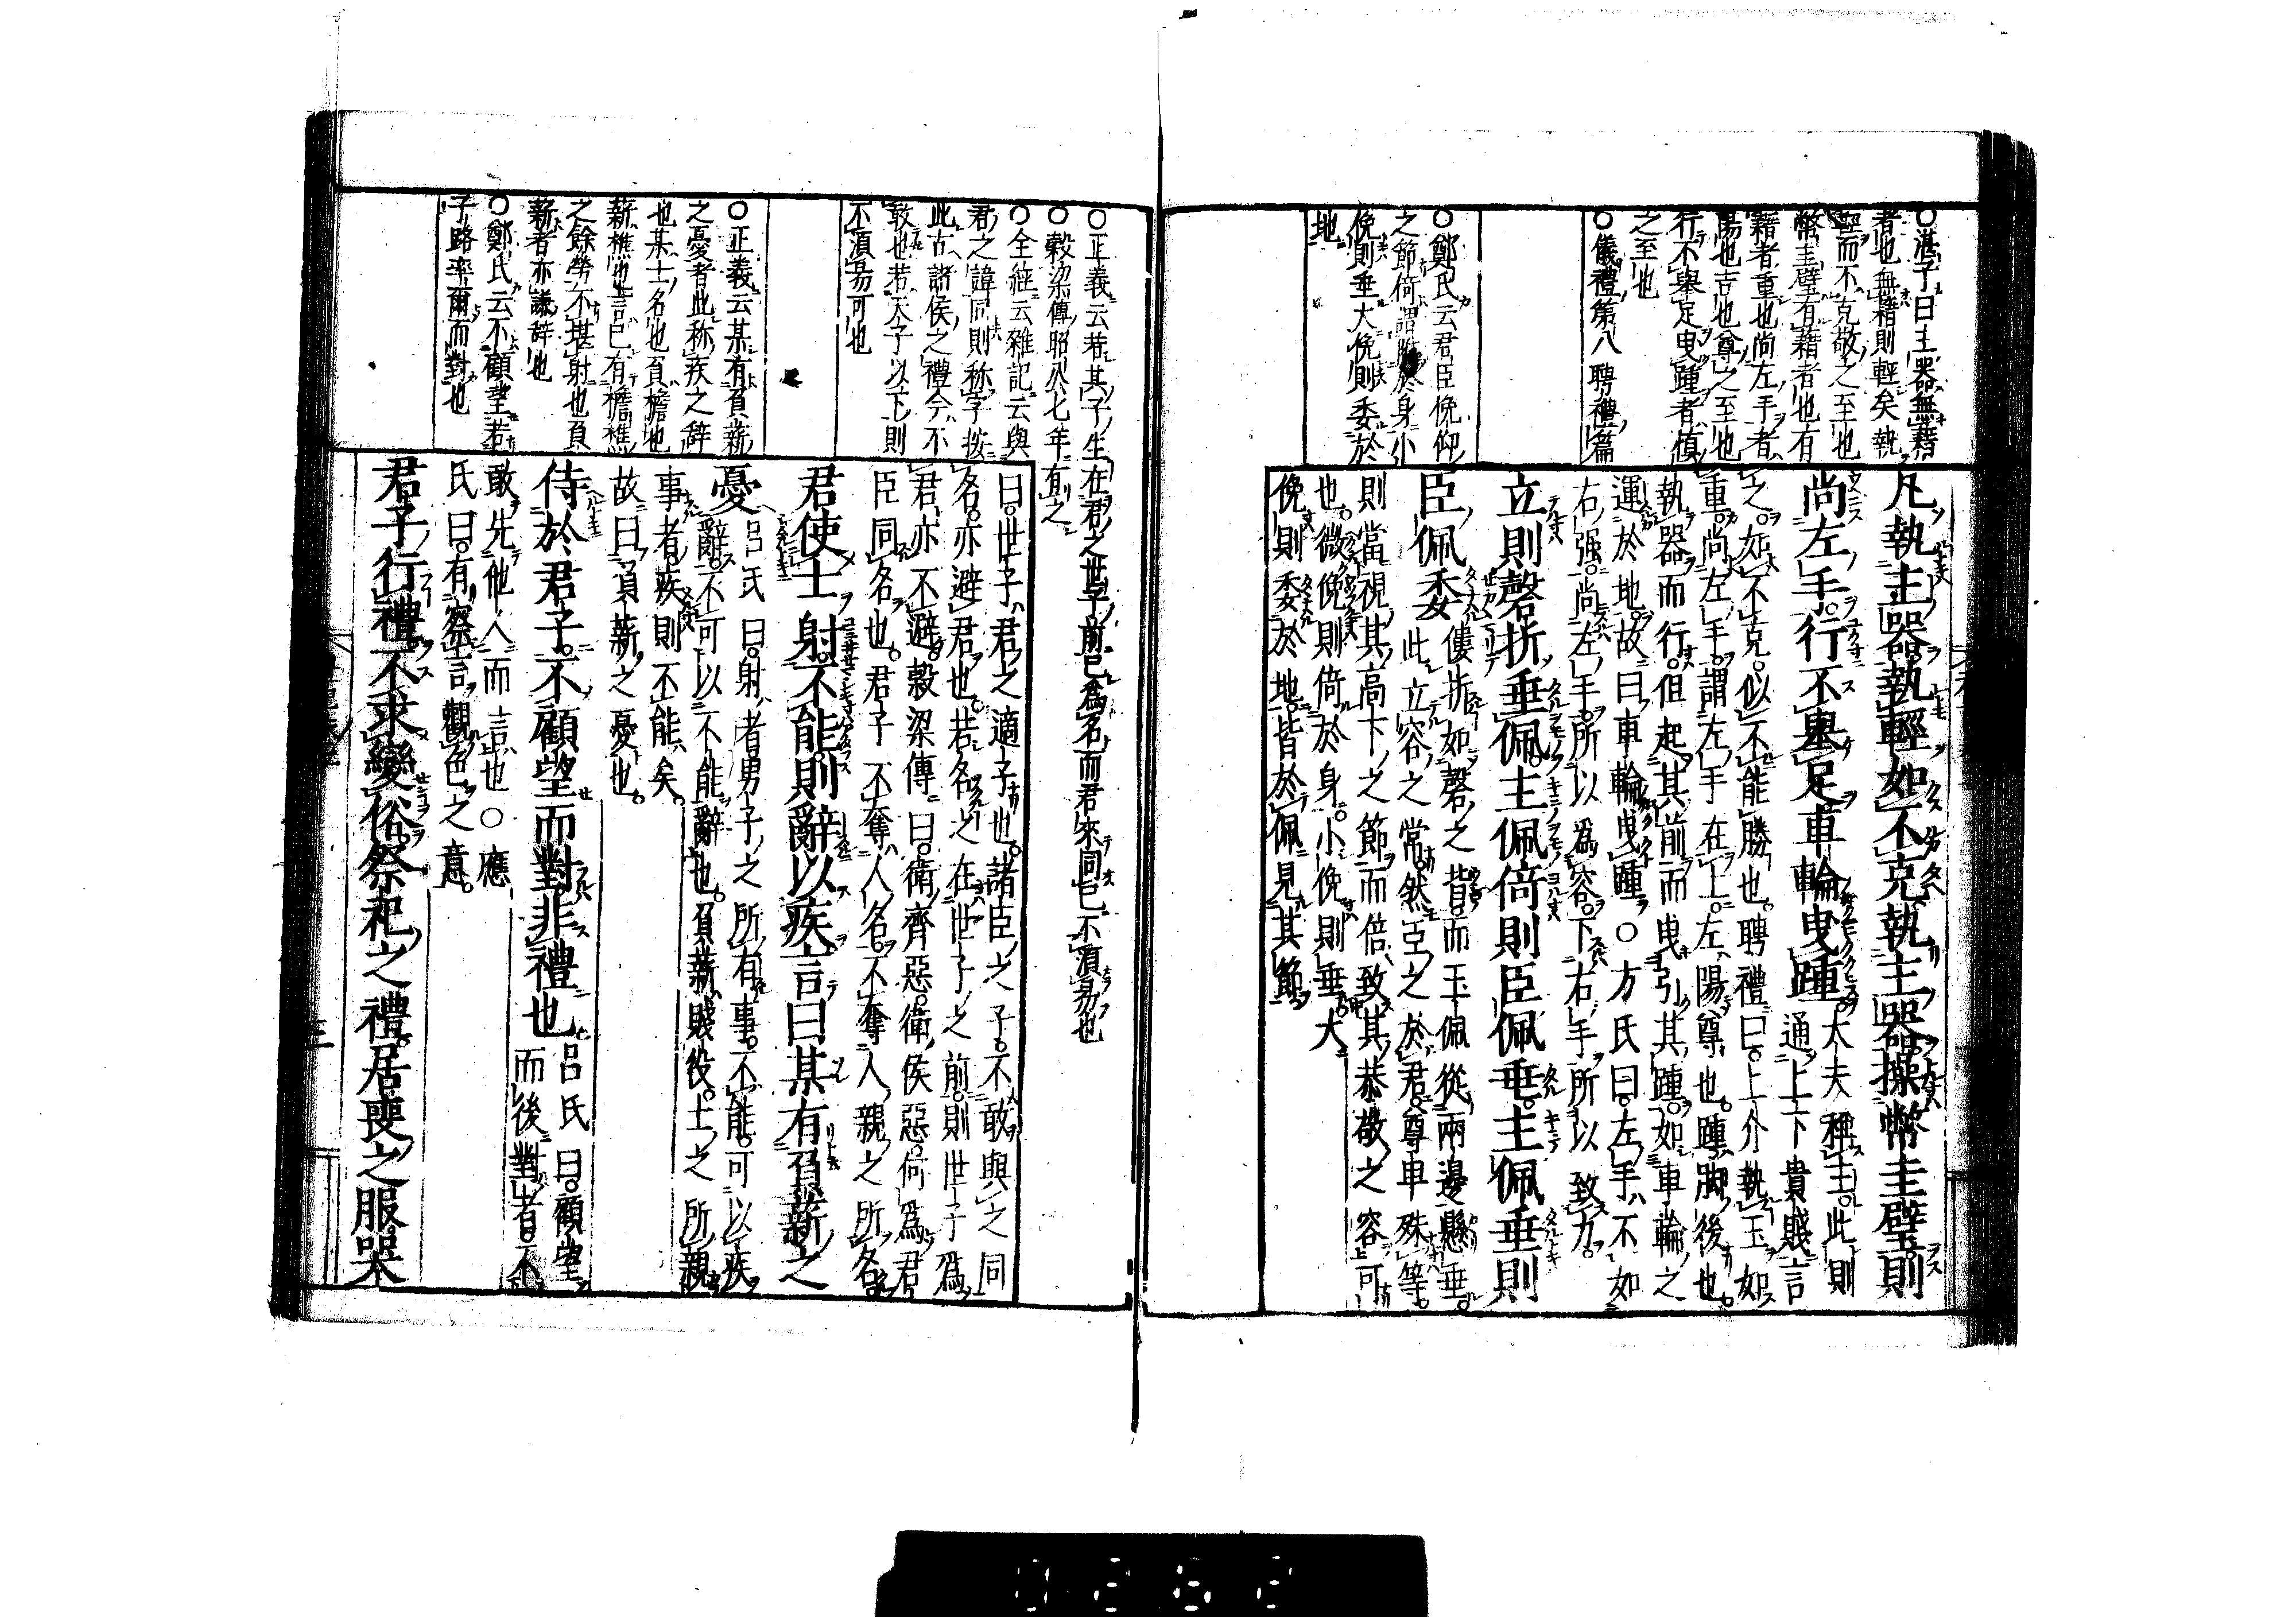 ○湛子曰主器無藉
者也無藉則輕矣執
輕而不克敬之至也
幣圭璧有藉者也有
藉者重也尚左手者
陽也吉也尊之至也
行不舉足曳踵者慎
之至也
○儀禮第八聘禮篇
○鄭氏云君臣俛仰
之節倚謂附於身小
俛則垂大俛則委於
地
凡執主器執輕如不克執主器操幣圭璧則
尚左手行不舉足車輪曳踵
大夫稱主此則
通上下貴賤言
之如不克似不能勝也聘禮曰上介執玉如
重尚左手謂左手在上左陽尊也踵脚後也
執器而行但起其前而曳引其踵如車輪之
運於地故曰車輪曳踵○方氏曰左手不如
右强尚左手所以為容下右手所以致力
立則磬折垂佩主佩倚則臣佩垂主佩垂則
臣佩委
僂折如磬之背而玉佩從兩邊懸垂
此立容之常然臣之於君尊卑殊等
則當視其高下之節而倍致其恭敬之容可
也微俛則倚於身小俛則垂大
俛則委於地皆於佩見其節
○正義云若其子生在君之世子前已為名而君來同已不須易也
○穀梁傳昭公七年有之
○全經云雜記云與
君之諱同則称字按
此古諸侯之禮今不
敢也若天子以下則
不須易可也
○正義云某有負薪
之憂者此称疾之辞
也某士名也負檐也
薪樵也言已有檐樵
之餘勞不堪射也負
薪者亦謙辞也
○鄭氏云不顧望若
子路率爾而對也
曰世子君之適子也諸臣之子不敢與之同
名亦避君也若名之在世子之前則世子為
君亦不避穀梁傳曰衛齊惡衛侯惡何為君
臣同名也君子不奪人名不奪人親之所名
君使士射不能則辭以疾言曰某有負薪之
憂
呂氏曰射者男子之所有事不能可以疾
辭不可以不能辭也負薪賤役士之所親
事者疾則不能矣
故曰負薪之憂也
侍於君子不顧望而對非禮也
呂氏曰顧望
而後對者不
敢先他人而言也○應
氏曰有察言觀色之意
君子行禮不求變俗祭祀之禮居喪之服哭
三
0262